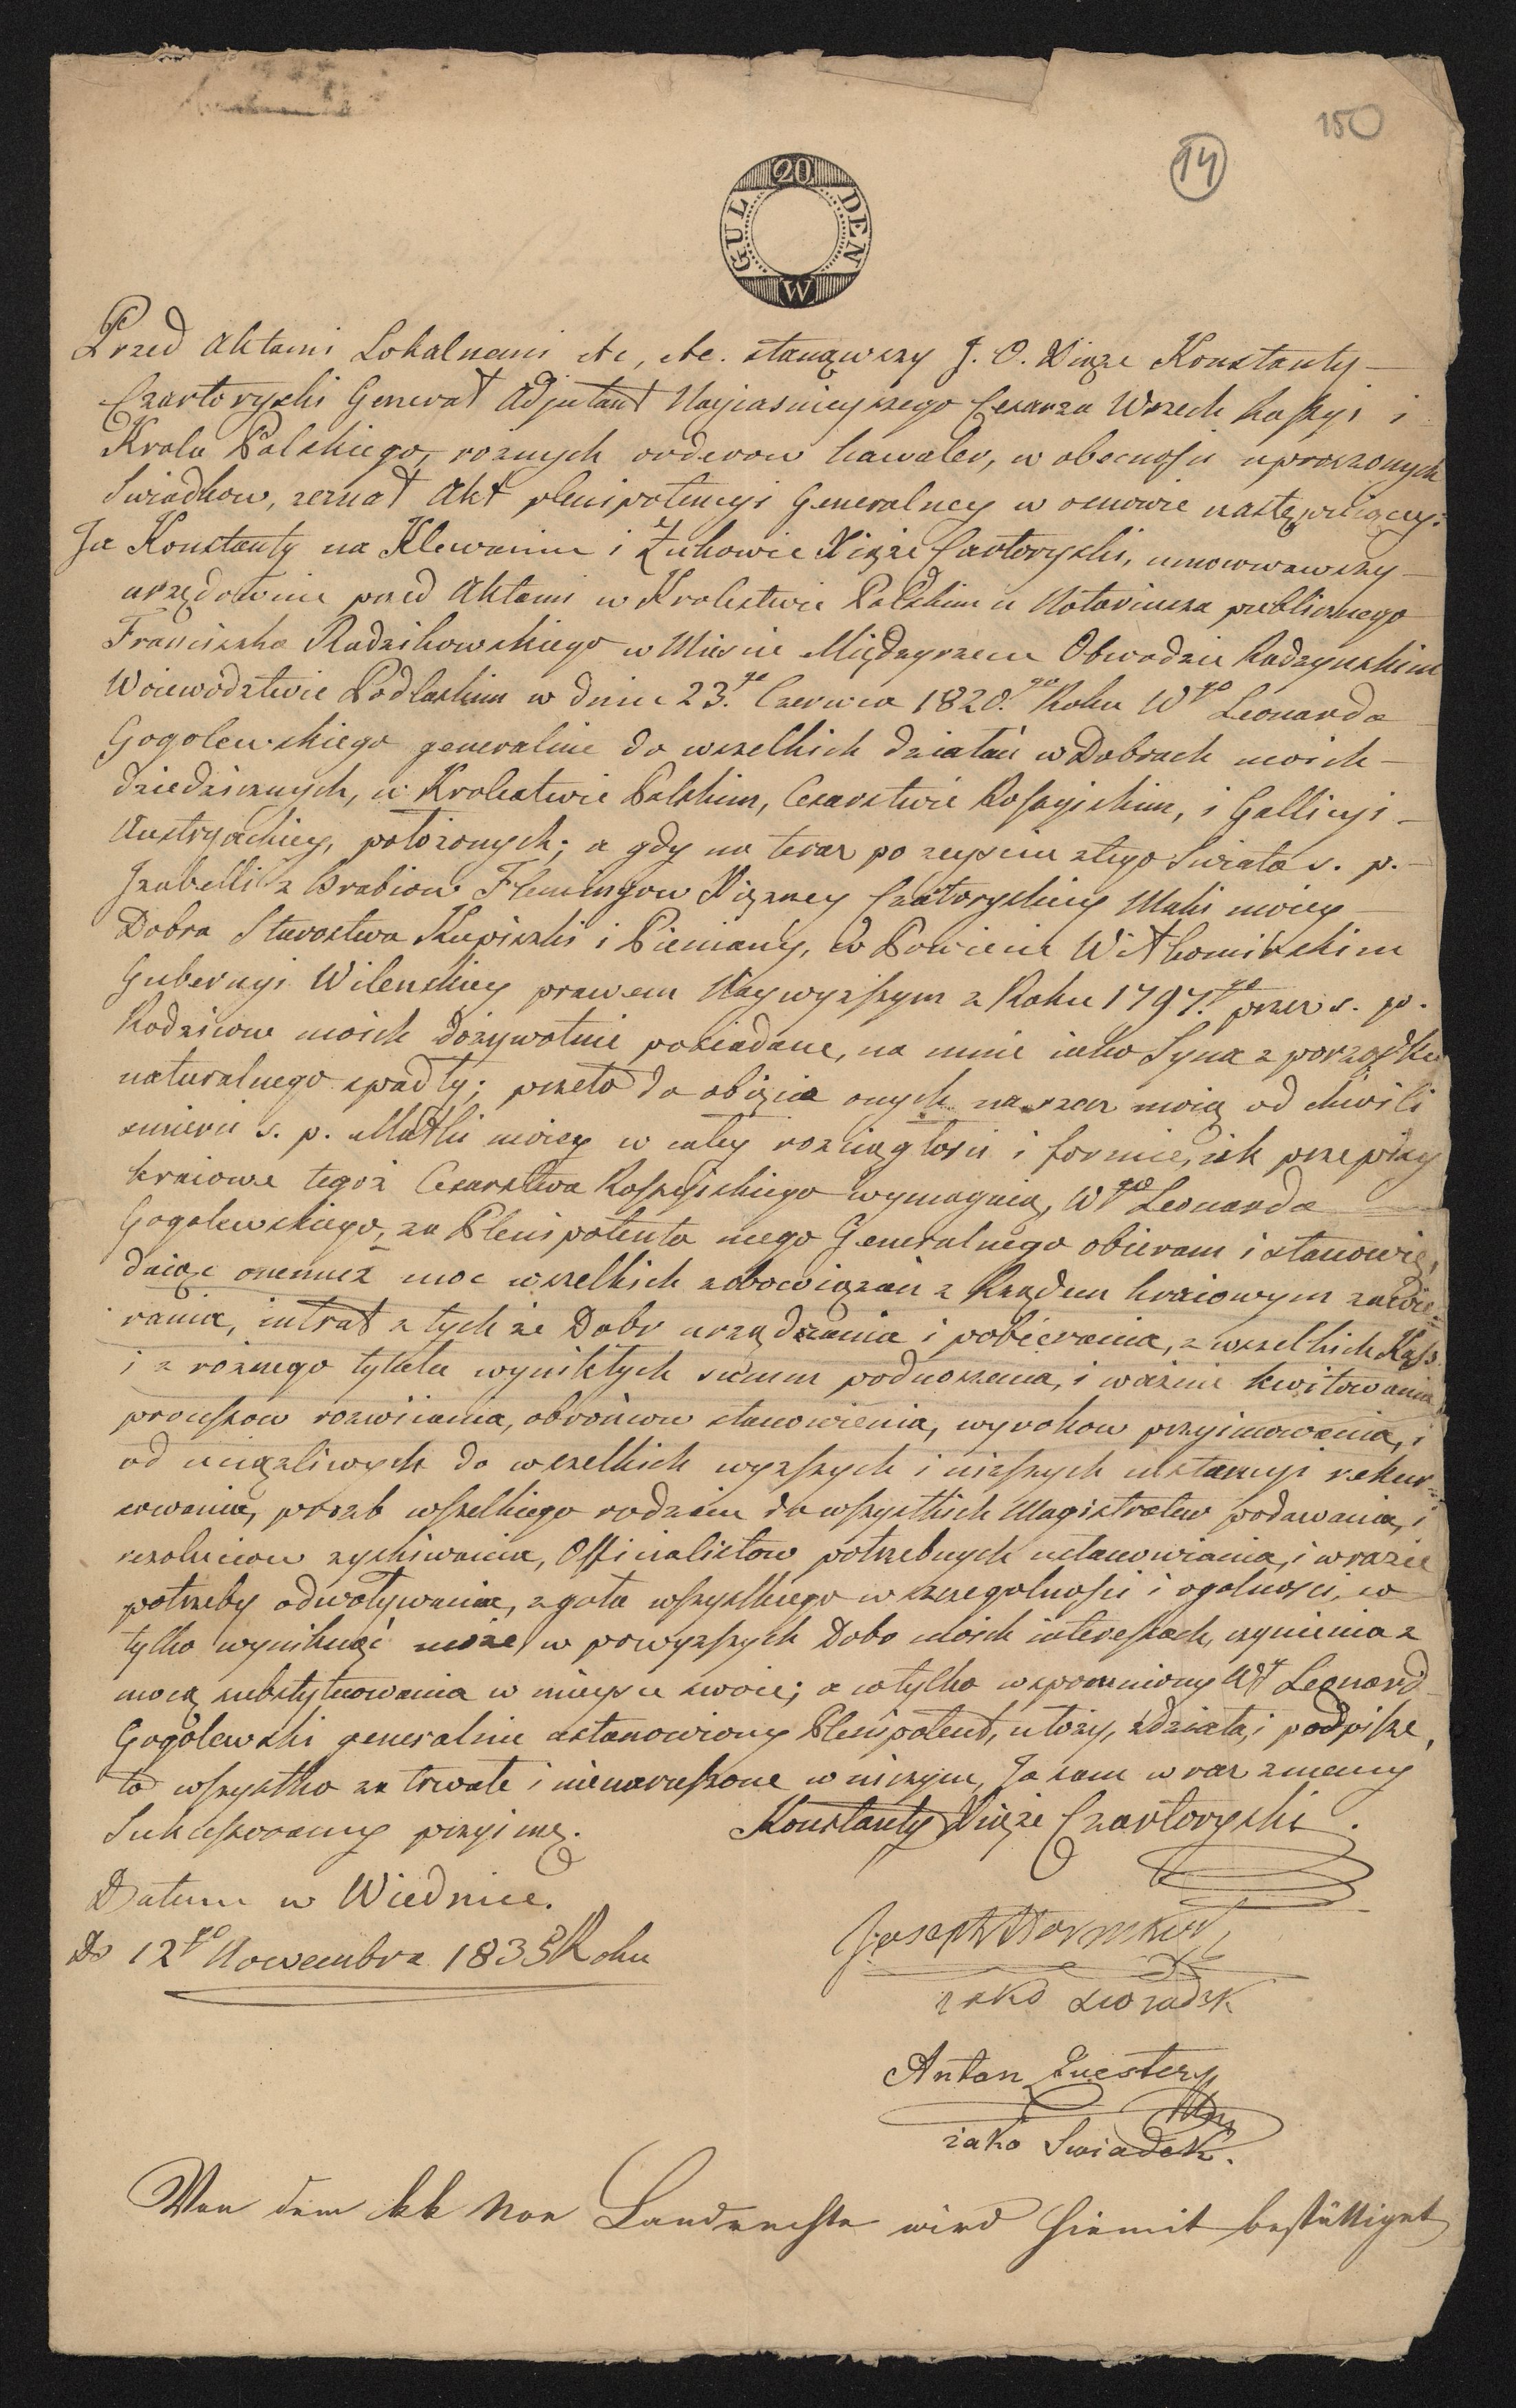 150
14
20
GUL DEN
W
Przed Aktami Lokalnemi etc, etc. stanąwszy J. O. Xiąże Konstanty
Czartoryski Generał Adjutant Nayiasnieyszego Cesarza Wszech Rossyi i
Krola Polskiego, roznych orderow kawaler, w obecnosci uproszonych
Swiadkow, zeznał Akt plenipotencyi Generalney w osnowie następuiącey:
Ja Konstanty na Klewaniu i Żukowie Xiąże Czartoryski, umocowawszy
urzędownie przed Aktami w Krolestwie Polskim u Notariusza publicznego
Franciszka Radzikowskiego w Miescie Międzyrzecu Obwodzie Radzynskim
Woiewodztwie Podlaskim w dniu 23.go Czerwca 1820.go Roku Wgo Leonarda
Gogolewskiego generalnie do wszelkich działań w Dobrach moich
dziedzicznych, w Krolestwie Polskim, Cesarstwie Rossyiskim, i Gallicyi
Austryackiey, położonych; a gdy na teraz po zeyściu z tego Swiata s. p.
Izabelli z Hrabiow Flemingow Xiężney Czartoryskiey Matki moiey
Dobra Starostwa Kupiszki i Pieniany, w Powiecie Wiłkomirskim
Gubernyi Wilenskiey prawem Naywyższym z Roku 1797.go przez s. p.
Rodzicow moich dożywotnie posiadane, na mnie iako Syna z porządku
naturalnego spadły; przeto do obięcia onych na rzecz moią od chwili
smierci s. p. Matki moiey w całey rozciągłosci i formie, iak przepisy
kraiowe tegoż Cesarstwa Rossyiskiego wymagaią, Wgo Leonarda
Gogolewskiego, za Plenipotenta mego Generalnego obieram i stanowię,
daiąc onemuż moc wszelkich zobowiązań z Rządem kraiowym zawie-
rania, intrat z tychże Dobr urządzania i pobierania, z wszelkich Kass
i z rożnego tytułu wynikłych summ podnoszenia, i ważnie kwitowania,
processow rozwiiania, obrońcow stanowienia, wyrokow przyimowania, i
od uciążliwych do wszelkich wyższych i niższych instancyi rekur-
sowania, prozb wszelkiego rodzaiu do wszystkich Magistratow podawania, i
rezoluciow zyskiwania, Officialistow potrzebnych ustanowiania, i w razie
potrzeby odwoływania, zgoła wszystkiego w szczegolności i ogolności, co
tylko wyniknąć może w powyższych Dobr moich interessach, czynienia z
mocą substytuowania w mieysce swoie; a co tylko wspomniony Wy Leonard
Gogolewski generalnie ustanowiony Plenipotent, ułoży, zdziała, i podpisze,
to wszystko za trwałe i nienaruszone w niczym, Ja sam w raz z memi
Sukcessorami przyimę.
Konstanty Xiąże Czartoryski.
Datum w Wiedniu.
D. 12go Nowembra 1835 Roku
Joseph
iako swiadek
Anton
iako Swiadek.
Von dem kk Landrechte wird hiemit bestättiget